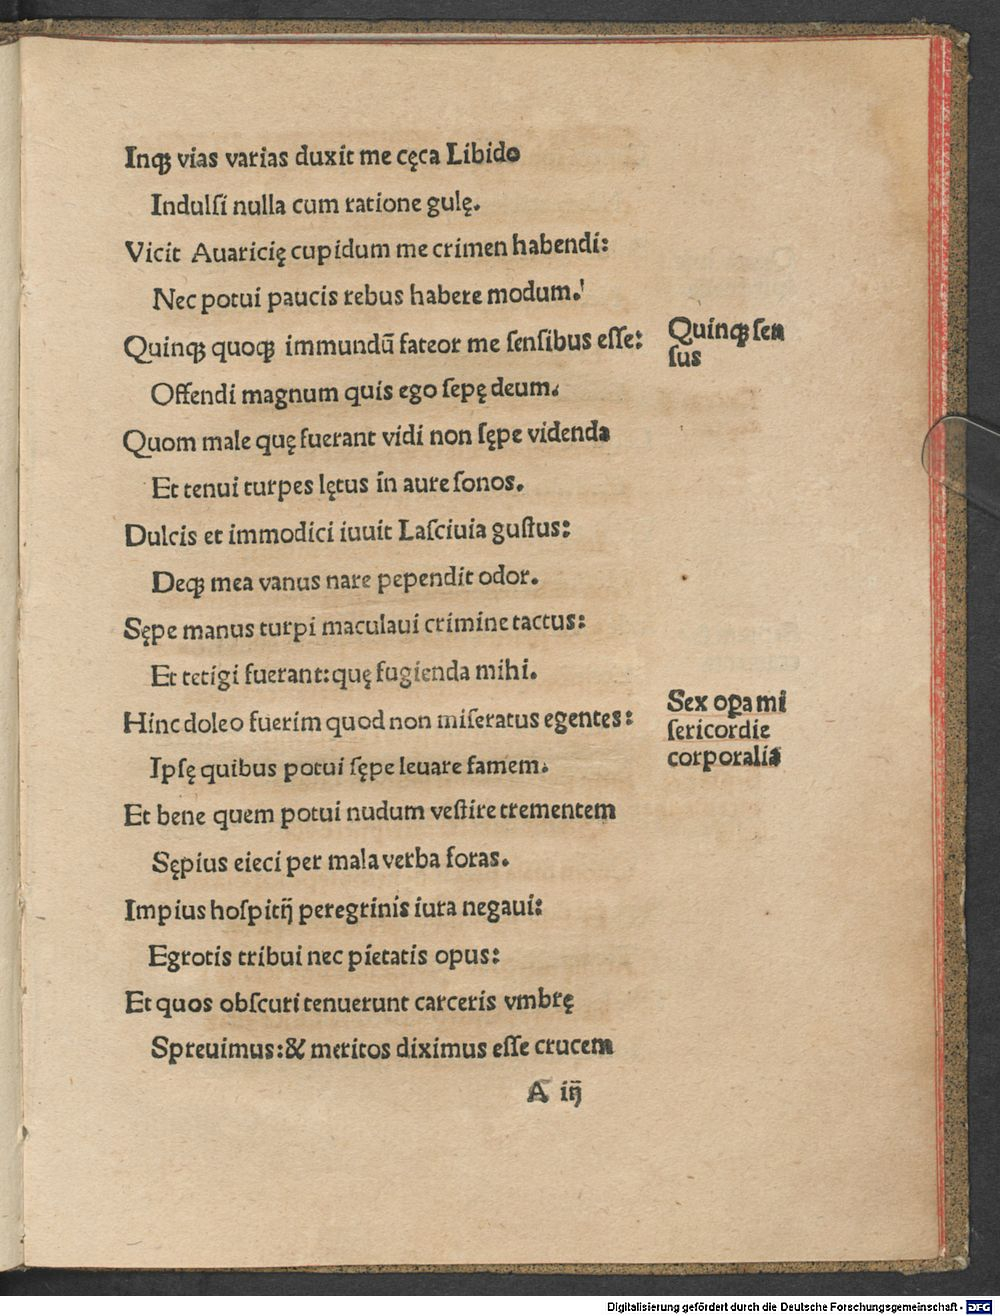 Inqꝫ vias varias duxit me cęca Libido
Indulſi nulla cum ratione gulę.
Vicit Auaricię cupidum me crimen habendi:
Nec potui paucis rebus habere modum.
Quinqꝫ quoqꝫ immundū fateor me ſenſibus eſſe:
Quinqꝫ ſen
ſus
Offendi magnum quis ego ſepę deum.
Quom male quę fuerant vidi non ſępe videnda
Et tenui turpes lętus in aure ſonos.
Dulcis et immodici iuuit Laſciuia guſtus:
Deqꝫ mea vanus nare pependit odor.
Sępe manus turpi maculaui crimine tactus:
Et tetigi fuerant: quę fugienda mihi.
Hinc doleo fuerim quod non miſeratus egentes:
Sex oꝑa mi
ſericordie
corporalia
Ipſę quibus potui ſępe leuare famem.
Et bene quem potui nudum veſtire trementem
Sępius eieci per mala verba foras.
Impius hoſpitij peregrinis iura negaui:
Egrotis tribui nec pietatis opus:
Et quos obſcuri tenuerunt carceris vmbrę
Spreuimus: & meritos diximus eſſe crucem
A iij
Digitalisierung gefördert durch die Deutsche Forschungsgemeinschaft - DFG